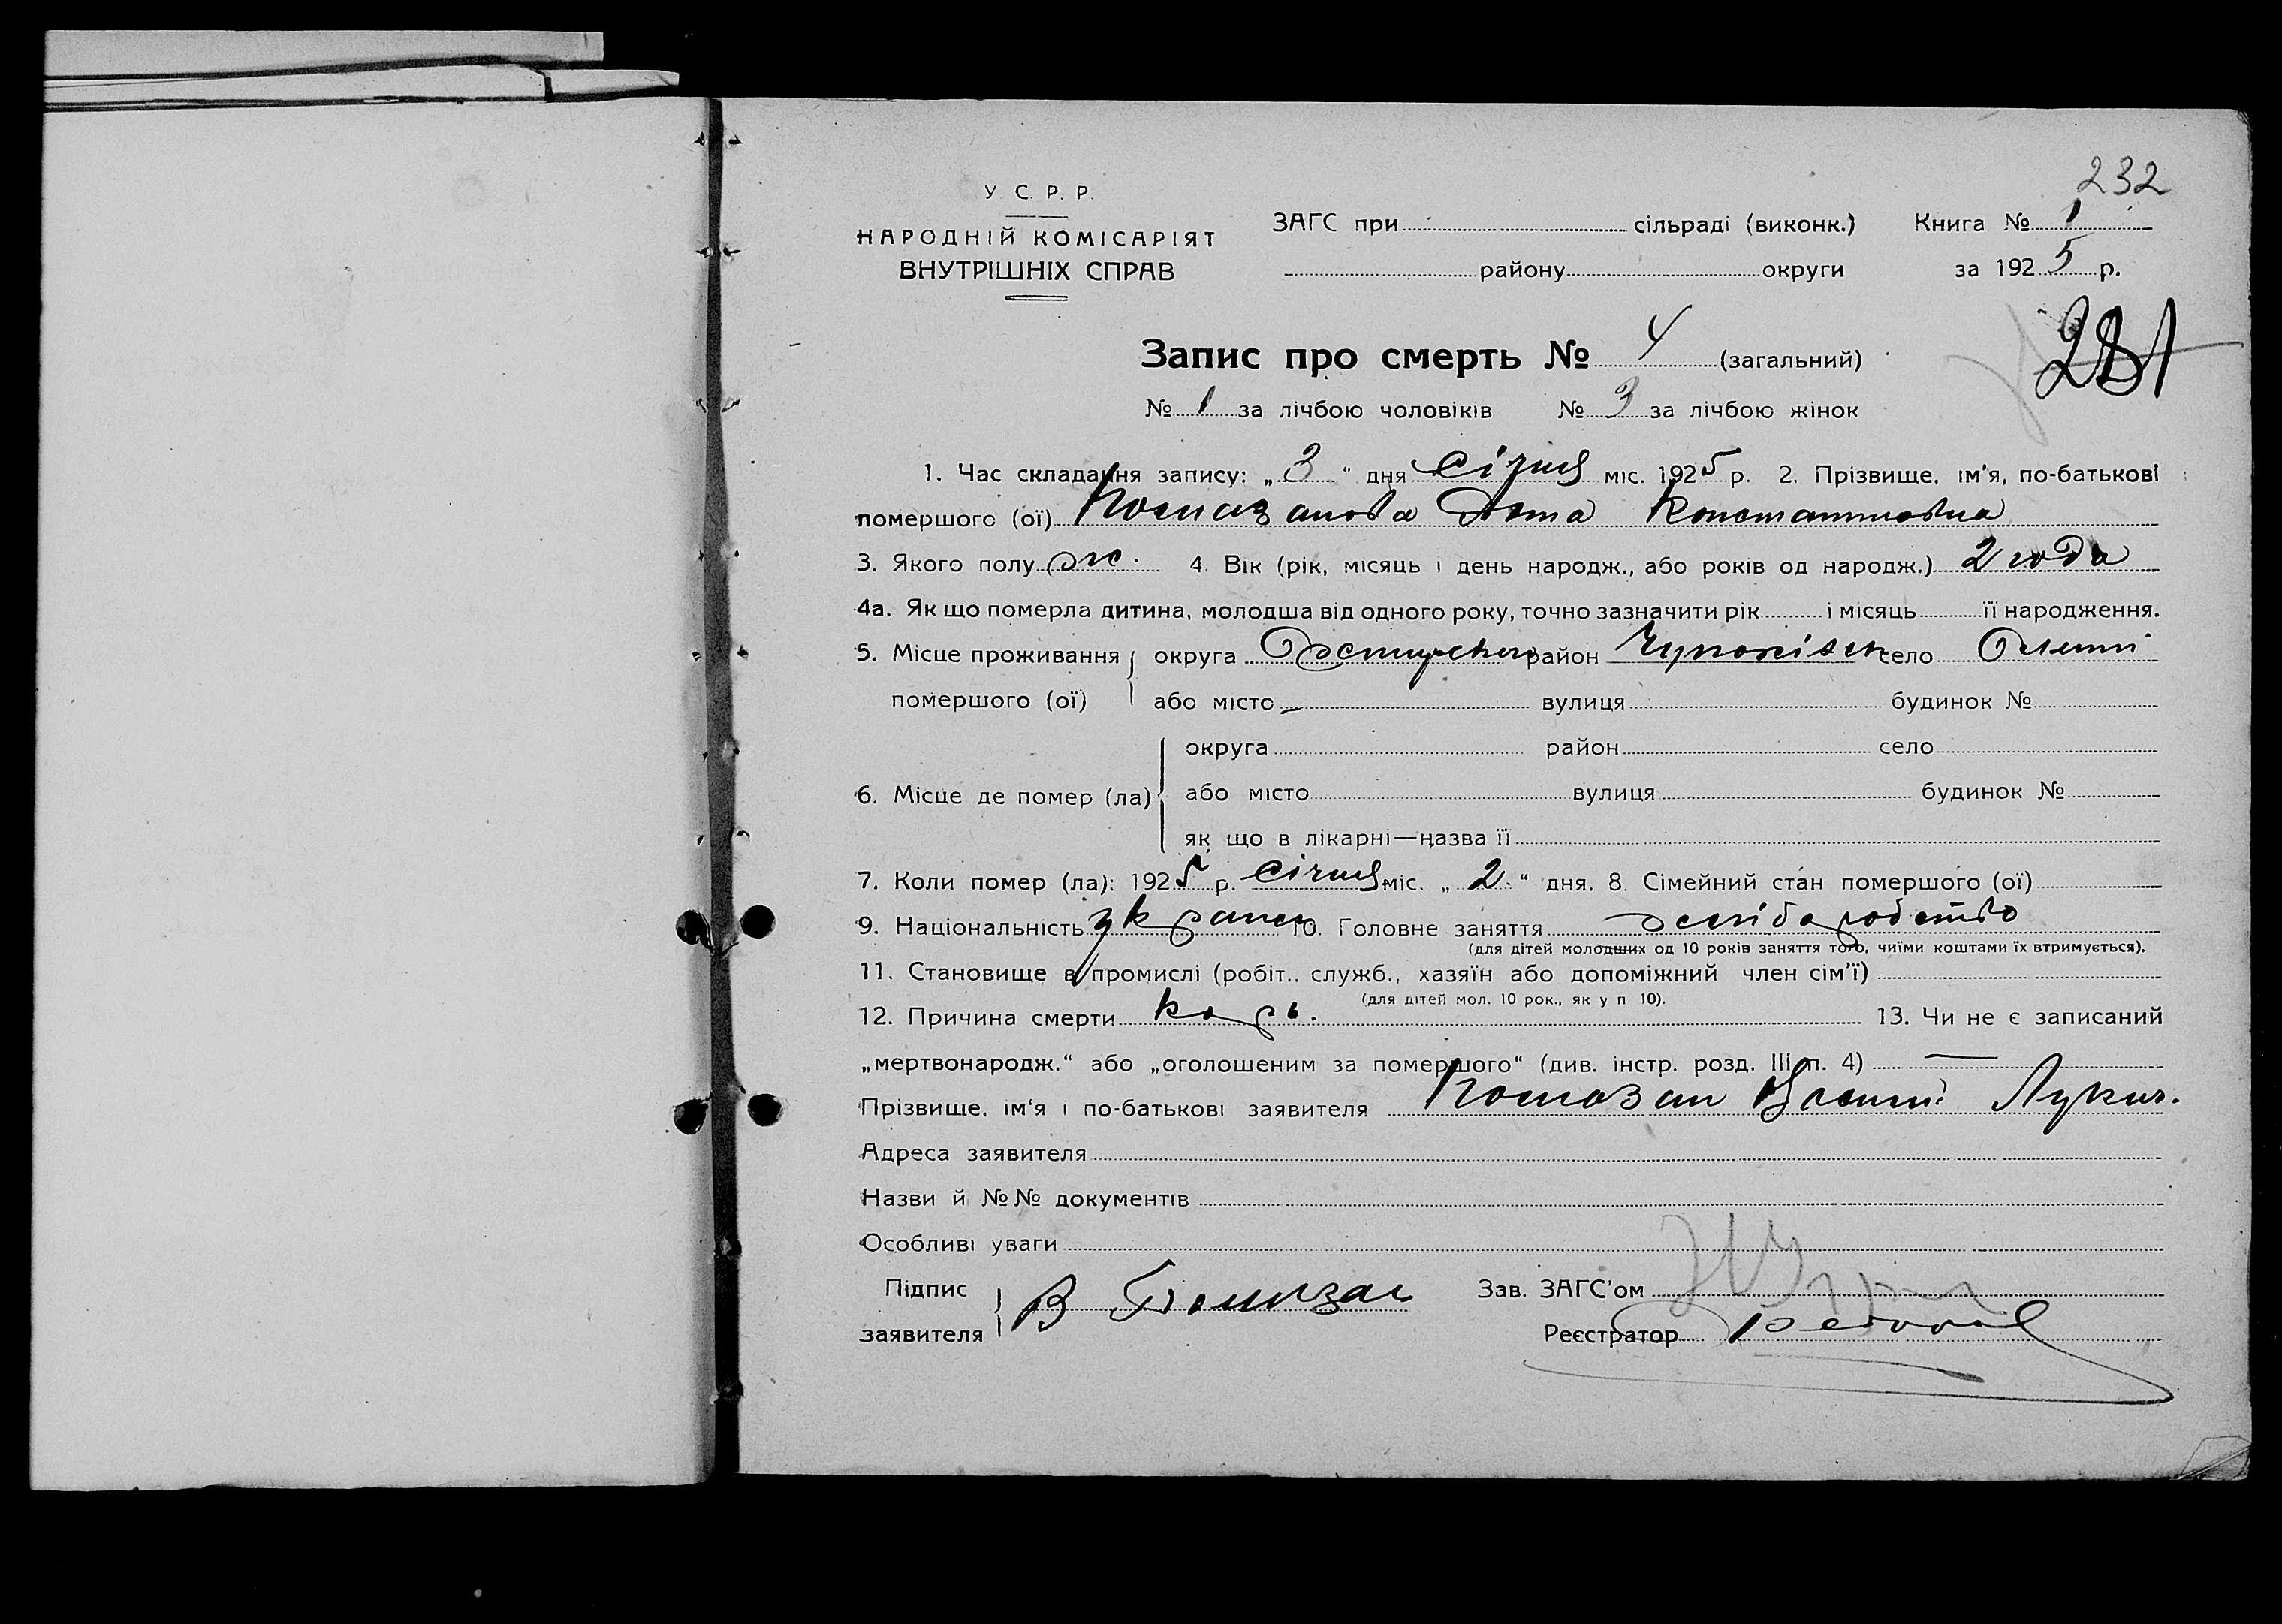 232
У. С. Р. Р.
НАРОДНІЙ КОМІСАРІЯТ
ВНУТРІШНІХ СПРАВ
ЗАГС при сільраді (виконк.) Книга № 1
району округи за 1925 р.
Запис про смерть № 4 (загальний)
231
№ 1 за лічбою чоловіків № 3 за лічбою жінок
1. Час складання запису: „3“ дня січня міс. 1925 р. 2. Прізвище, ім'я, по-батькові
помершого (ої) Константиновна
3. Якого полу ж. 4. Вік (рік, місяць і день народж., або років од народж.) 2 года
4а. Як що померла дитина, молодша від одного року, точно зазначити рік і місяць її народження.
5. Місце проживання округа район село
помершого (ої) або місто – вулиця будинок №
округа район село
6. Місце де помер (ла) або місто вулиця будинок №
як що в лікарні—назва її
7. Коли помер (ла): 1925 р. січня міс. „2“ дня. 8. Сімейний стан помершого (ої)
9. Національність 10. Головне заняття
(для дітей молодших од 10 років заняття того, чиїми коштами їх втримується).
11. Становище в промислі (робіт., служб., хазяїн або допоміжний член сім'ї)
(для дітей мол. 10 рок., як у п 10).
12. Причина смерти корь. 13. Чи не є записаний
„мертвонародж.“ або „оголошеним за помершого“ (див. інстр. розд. III п. 4) —
Прізвище, ім'я і по-батькові заявителя Помазан Лукич.
Адреса заявителя
Назви й №№ документів
Особливі уваги
Підпис
заявителя В Помазан
Зав. ЗАГС'ом
Реєстратор